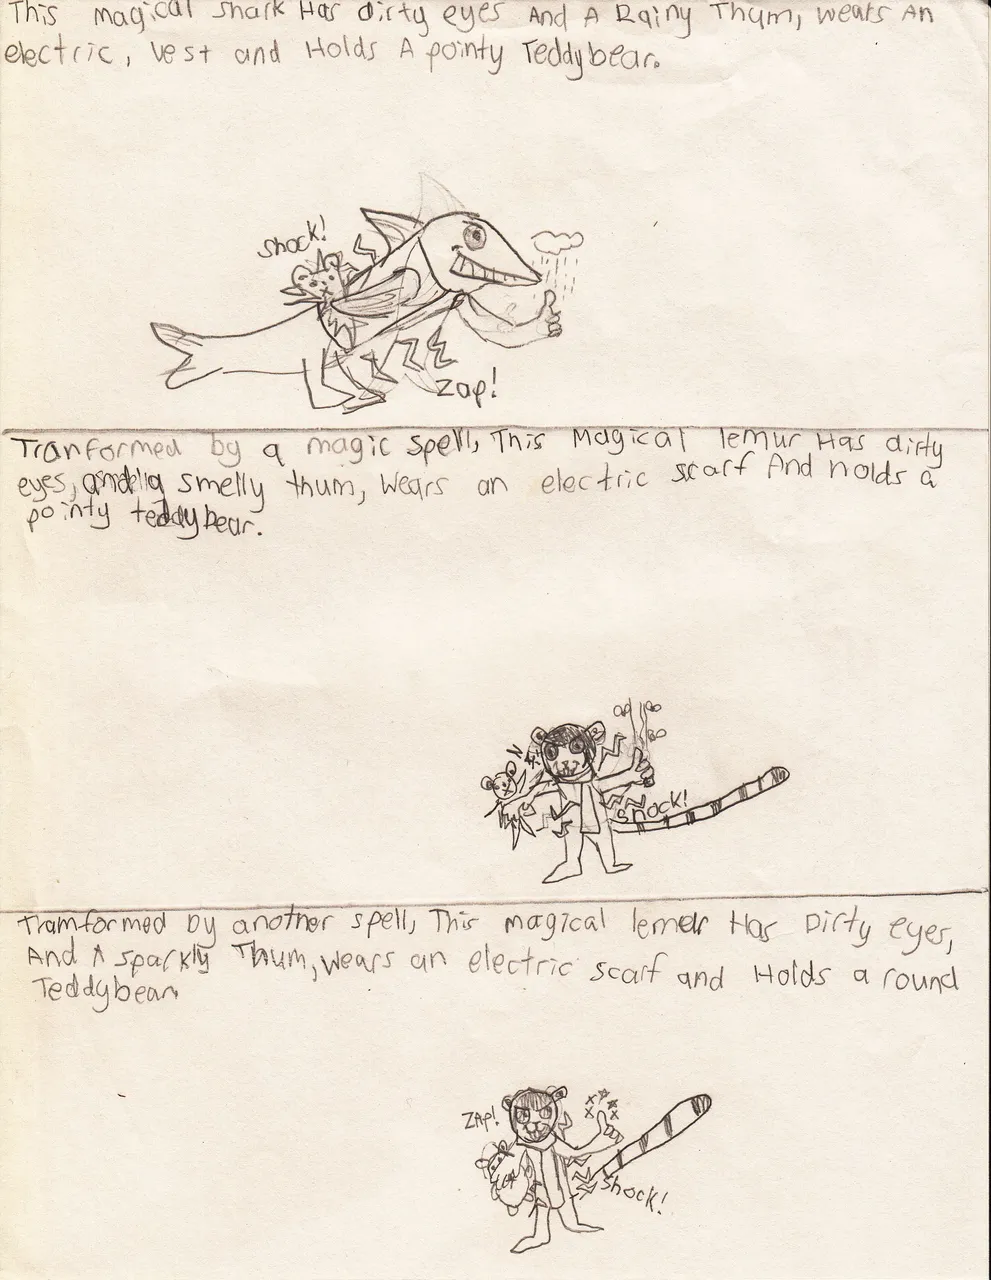 This magical shark Has dirty eyes And A Rainy Thum, wears An
electric, vest and Holds A pointy Teddybear.
shock!
zap!
Tranformed by a magic spell, This Magical lemur Has dirty
eyes, smelly thum, wears an electric scarf And holds a
pointy teddybear.
shock!
Tramformed by another spell, This magical lemer Has Dirty eyes,
And A sparkly Thum, wears an electric scarf and Holds a round
Teddybear.
ZAP!
shock!